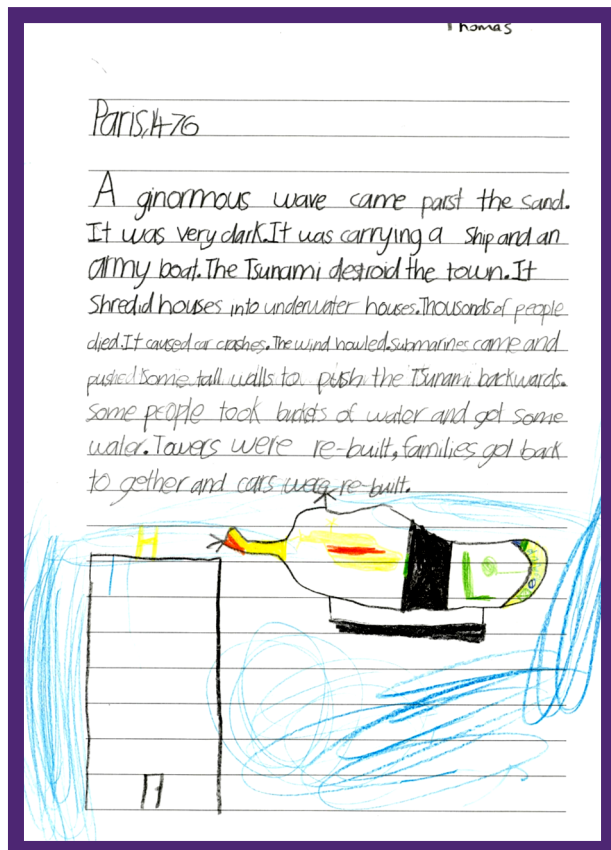 Thomas
Paris, 1476
A ginormous wave came parst the sand.
It was very dark. It was carrying a ship and an
army boat. The Tsunami destroid the town. It
Shredid houses into underwater houses. Thousands of people
died. It caused car crashes. The wind howled. submarines came and
pushed some tall walls to push the Tsunami backwards.
some people took buckets of water and got some
water. Towers were re-built, families got back
to gether and cars were re-built.
H